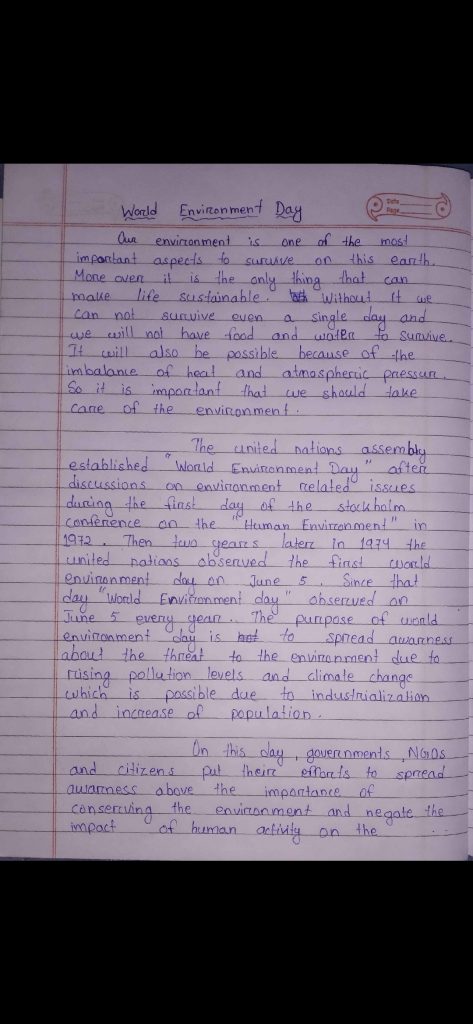 World Environment Day
Date
Page
Our environment is one of the most
important aspects to survive on this earth.
More over it is the only thing that can
make life sustainable. Without It we
can not survive even a single day and
we will not have food and water to survive.
It will also be possible because of the
imbalance of heat and atmospheric pressure.
So it is important that we should take
care of the environment.
The united nations assembly
established "World Environment Day" after
discussions on environment related issues
during the first day of the stockholm
conference on the "Human Environment" in
1972. Then two years later in 1974 the
united nations observed the first world
environment day on June 5. Since that
day "World Environment day" observed on
June 5 every year. The purpose of world
environment day is to spread awarness
about the threat to the environment due to
rising pollution levels and climate change
which is possible due to industrialization
and increase of population.
On this day, governments, NGOS
and citizens put their efforts to spread
awarness above the importance of
conserving the environment and negate the
impact of human activity on the